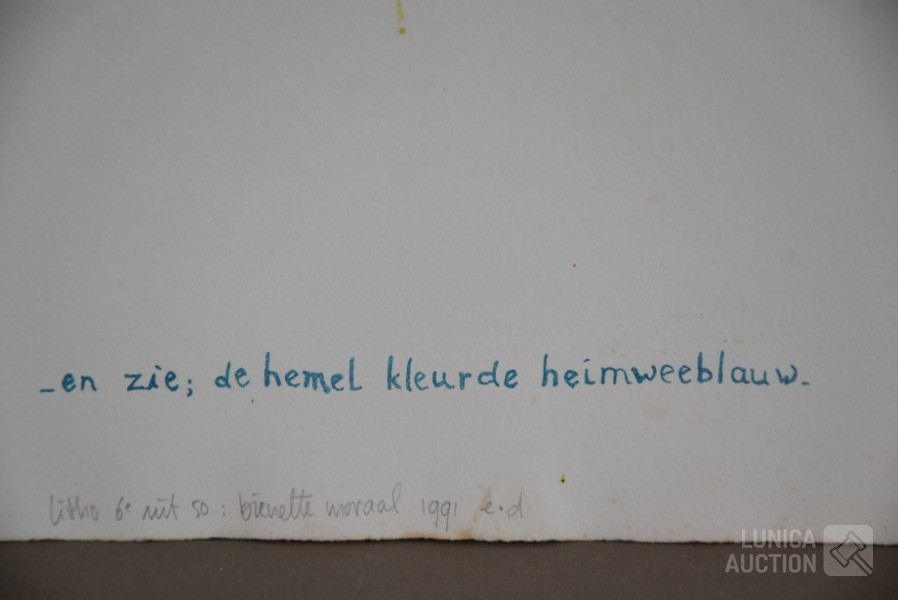 -en zie; de hemel kleurde heimweeblauw.
litho 6e uit 50 : bienette moraal 1991 e.d
LUNICA
AUCTION